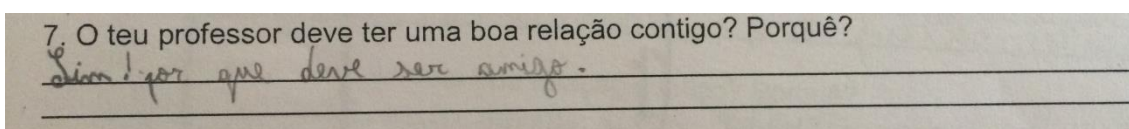 7. O teu professor deve ter uma boa relação contigo? Porquê?
Sim! por que deve ser amigo.